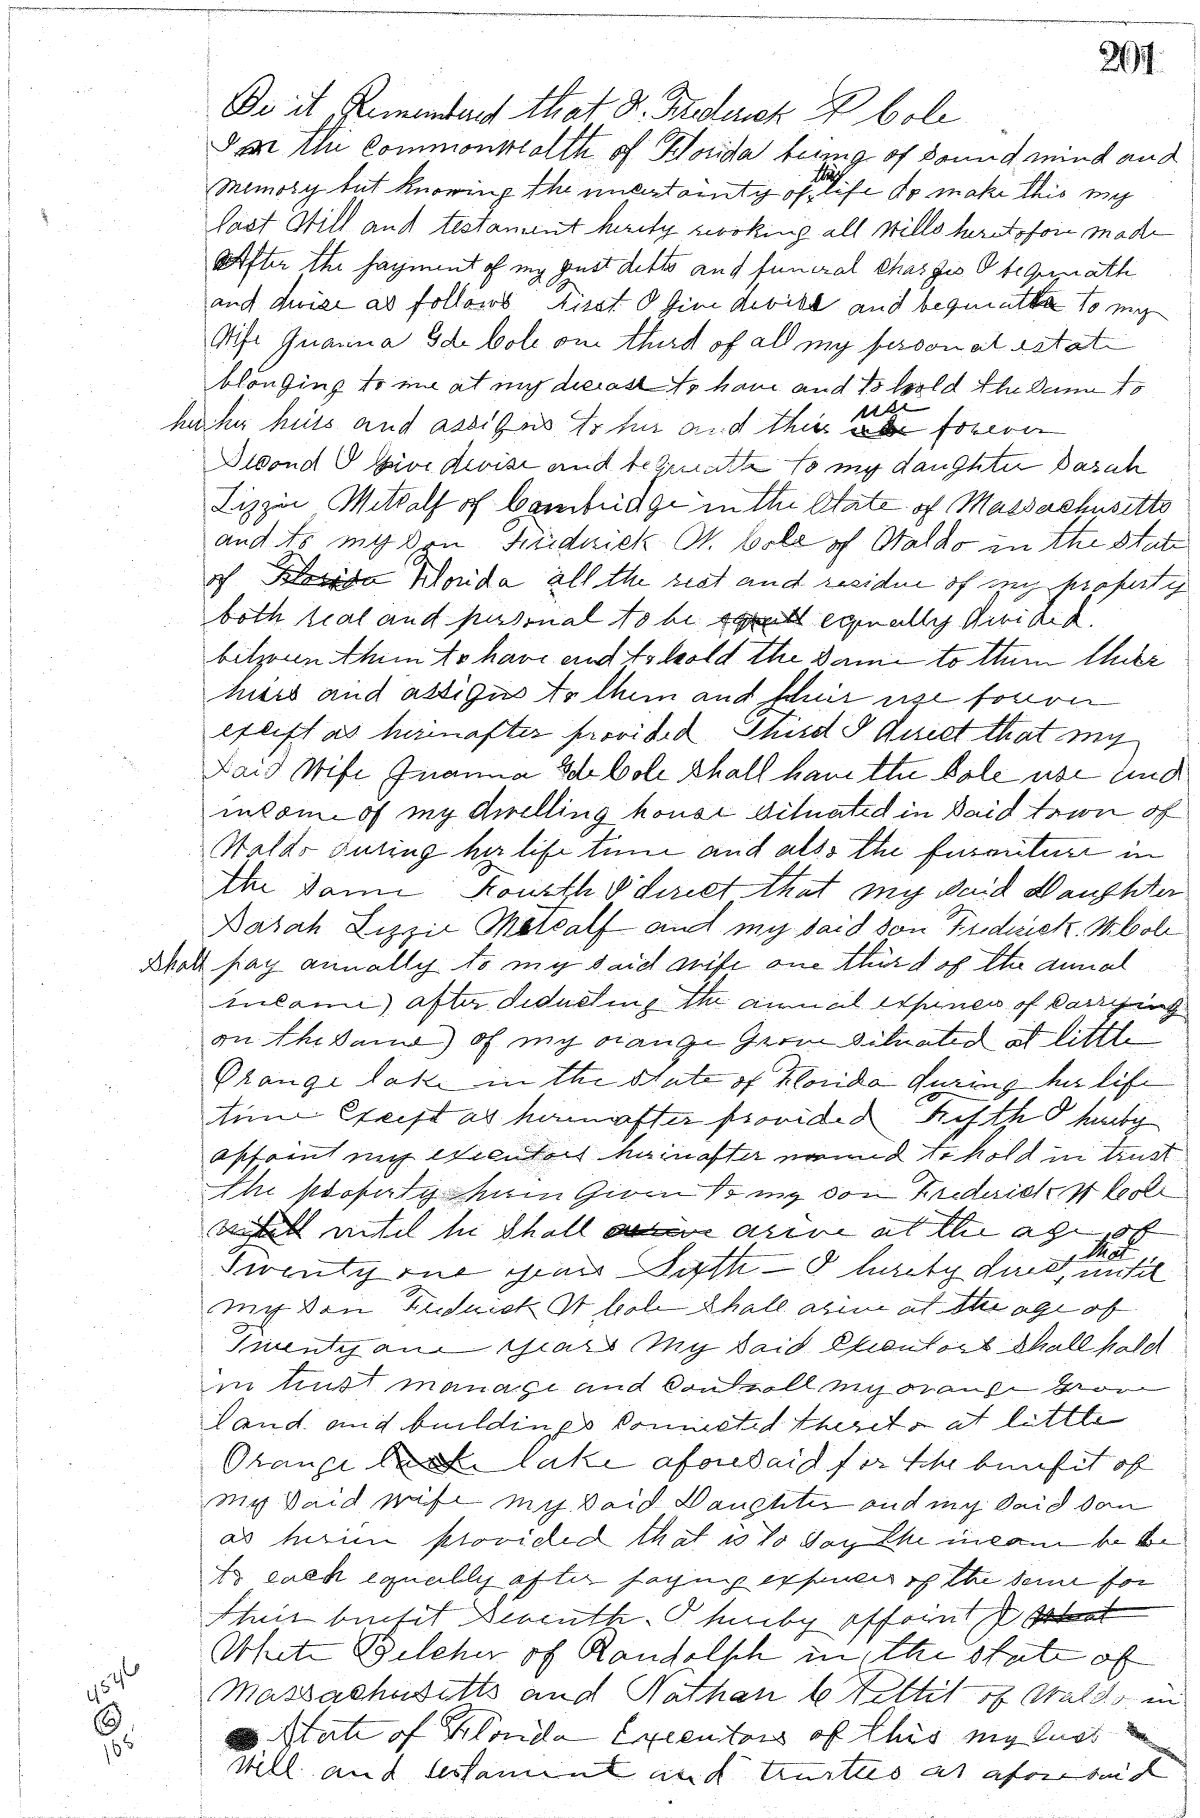 201
Be it Remembered that I. Frederick P Cole
I in the Commonwealth of Florida being of sound mind and
memory but knowing the uncertainty of this life do make this my
last Will and testament hereby revoking all Wills heretofore made
After the payment of my just debts and funeral Charges I bequeath
and divise as follows First I Give devise and bequeath to my
Wife Juanna Gde Cole one third of all my personal estate
blonging to me at my decease to have and to hold the same to
her her heirs and assigns to her and their use forever
Second I Give devise and bequeath to my daughter Sarah
Lizzie Metcalf of Cambridge in the State of Massachusetts
and to my son Frederick W. Cole of Waldo in the state
of Florida Florida all the rest and residue of my property
both real and personal to be equall equally divided.
between them to have and to hold the same to them their
heirs and assigns to them and their use forever
except as hereinafter provided Third I direct that my
said Wife Juanna Gde Cole shall have the sole use and
income of my dwelling house situated in said town of
Waldo during her life time and also the furniture in
the same Fourth I direct that my said Daughter
Sarah Lizzie Metcalf and my said son Frederick. W. Cole
shall pay anually to my said wife one third of the anual
income) after deducting the annual expences of carrying
on the same) of my orange Grove situated at little
Orange lake in the state of Florida during her life
time Except as hereinafter provided Fifth I hereby
appoint my executors hereinafter named to hold in trust
the property herein Given to my son Frederick W Cole
untill until he shall arive arive at the age of
Twenty one years Sixth - I hereby direct, that until
my son Frederick W Cole shall arive at the age of
Twenty one years My said Executors shall hold
in trust manage and controll my orange Grove
land and buildings connected thereto at little
Orange lake lake aforesaid for the benefit of
my said wife my said Daughter and my said son
as herein provided that is to say the incom be be
to each equally after paying expences of the same for
their benefit Seventh. I hereby appoint J
White Belcher of Randolph in the state of
Massachusetts and Nathan C Pettit of Waldo in
State of Florida Executors of this my last
will and testament and trustees as aforesaid
4546
165